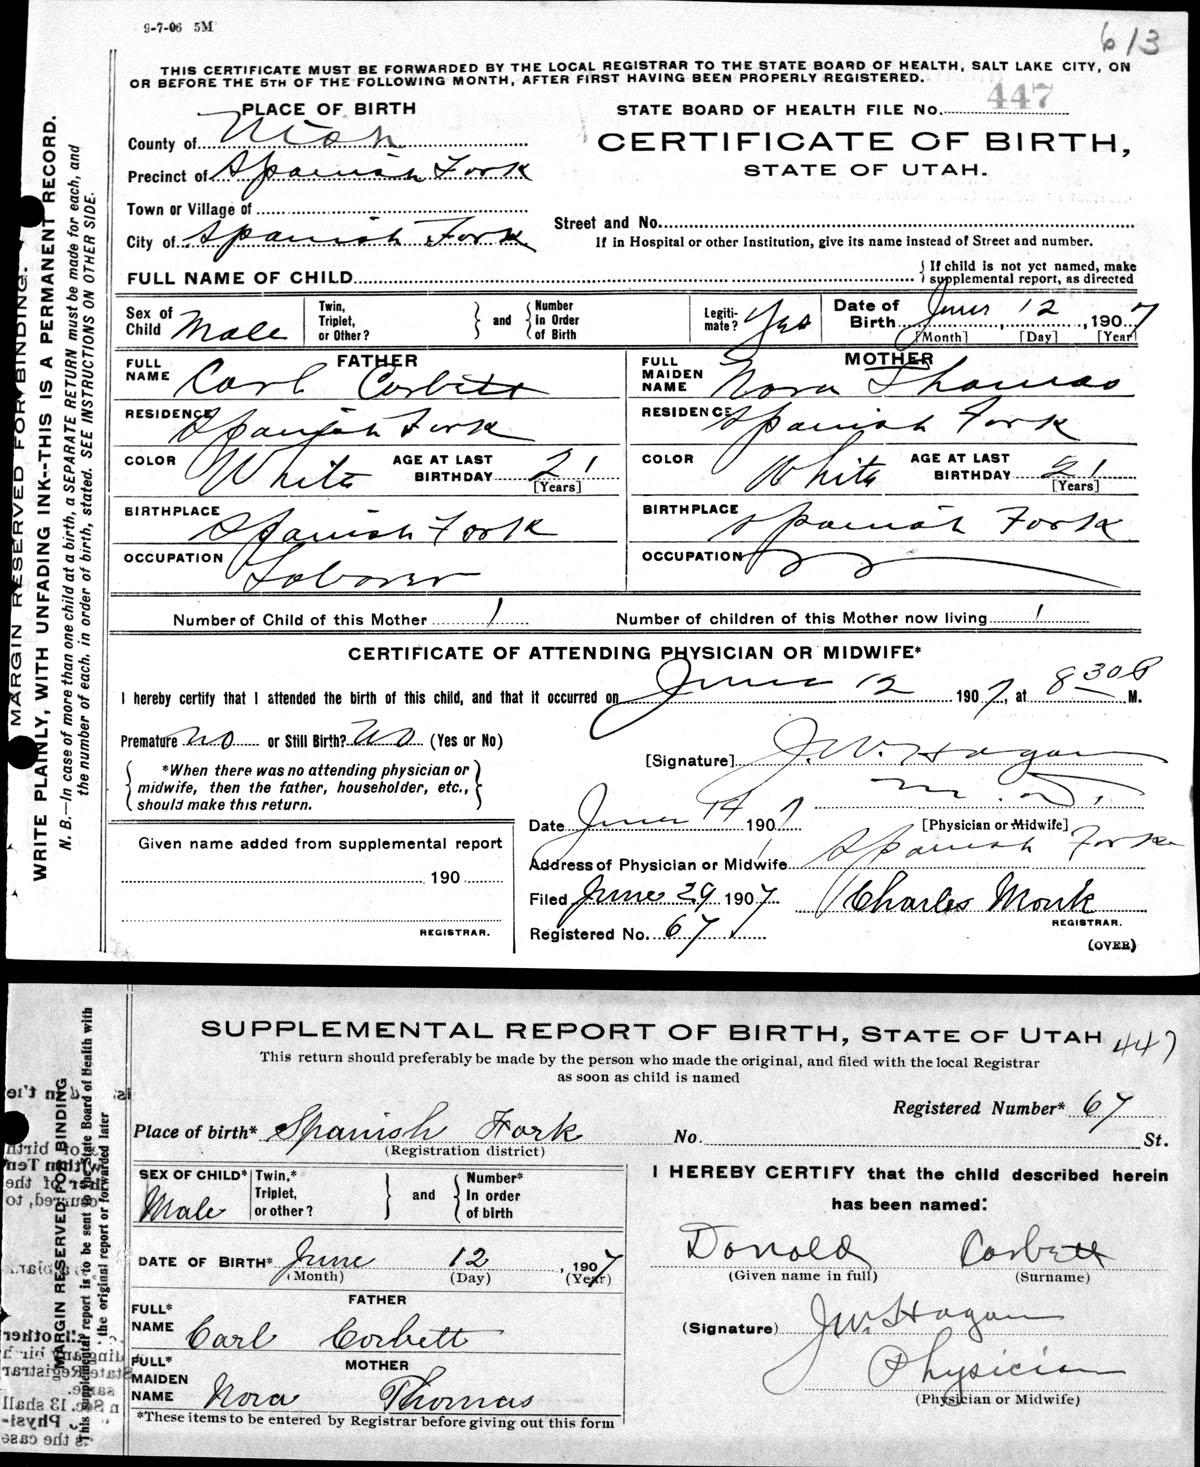 9-7-06 5M
613
THIS CERTIFICATE MUST BE FORWARDED BY THE LOCAL REGISTRAR TO THE STATE BOARD OF HEALTH, SALT LAKE CITY, ON
OR BEFORE THE 5TH OF THE FOLLOWING MONTH, AFTER FIRST HAVING BEEN PROPERLY REGISTERED.
PLACE OF BIRTH
STATE BOARD OF HEALTH FILE No. 447
County of Utah
CERTIFICATE OF BIRTH,
STATE OF UTAH.
Precinct of Spanish Fork
Town or Village of
Street and No.
City of Spanish Fork
If in Hospital or other Institution, give its name instead of Street and number.
FULL NAME OF CHILD
{ If child is not yet named, make
supplemental report, as directed
Sex of Child Male
Twin, Triplet, or Other? } and { Number in Order of Birth
Legiti-mate? Yes
Date of Birth June 12, 1907
[Month] [Day] [Year]
FATHER
FULL NAME Carl Corbett
MOTHER
FULL MAIDEN NAME Nora Thomas
RESIDENCE Spanish Fork
RESIDENCE Spanish Fork
COLOR White AGE AT LAST BIRTHDAY 21 [Years]
COLOR White AGE AT LAST BIRTHDAY 21 [Years]
BIRTHPLACE Spanish Fork
BIRTHPLACE Spanish Fork
OCCUPATION Laborer
OCCUPATION
Number of Child of this Mother 1
Number of children of this Mother now living 1
CERTIFICATE OF ATTENDING PHYSICIAN OR MIDWIFE*
I hereby certify that I attended the birth of this child, and that it occurred on June 12 1907, at 8 30 P M.
Premature no or Still Birth? no (Yes or No)
{ *When there was no attending physician or
midwife, then the father, householder, etc.,
should make this return. }
[Signature] J.W. Hagan
M.D.
[Physician or Midwife]
Date June 14 1907
Address of Physician or Midwife Spanish Fork
Given name added from supplemental report
190
REGISTRAR.
Filed June 29 1907 Charles Monk
REGISTRAR.
Registered No. 67
(OVER)
MARGIN RESERVED FOR BINDING.
WRITE PLAINLY, WITH UNFADING INK--THIS IS A PERMANENT RECORD.
N. B.—In case of more than one child at a birth, a SEPARATE RETURN must be made for each, and
the number of each, in order of birth, stated. SEE INSTRUCTIONS ON OTHER SIDE.
SUPPLEMENTAL REPORT OF BIRTH, STATE OF UTAH 447
This return should preferably be made by the person who made the original, and filed with the local Registrar
as soon as child is named
Registered Number* 67
Place of birth* Spanish Fork No. St.
(Registration district)
SEX OF CHILD* Male
Twin,* Triplet, or other? } and { Number* In order of birth
I HEREBY CERTIFY that the child described herein
has been named:
DATE OF BIRTH* June 12, 1907
(Month) (Day) (Year)
Donald Corbett
(Given name in full) (Surname)
FATHER
FULL* NAME Carl Corbett
(Signature) J.W. Hagan
Physician
(Physician or Midwife)
MOTHER
FULL* MAIDEN NAME Nora Thomas
*These items to be entered by Registrar before giving out this form
MARGIN RESERVED FOR BINDING
This supplemental report is to be sent to the State Board of Health with
the original report or forwarded later